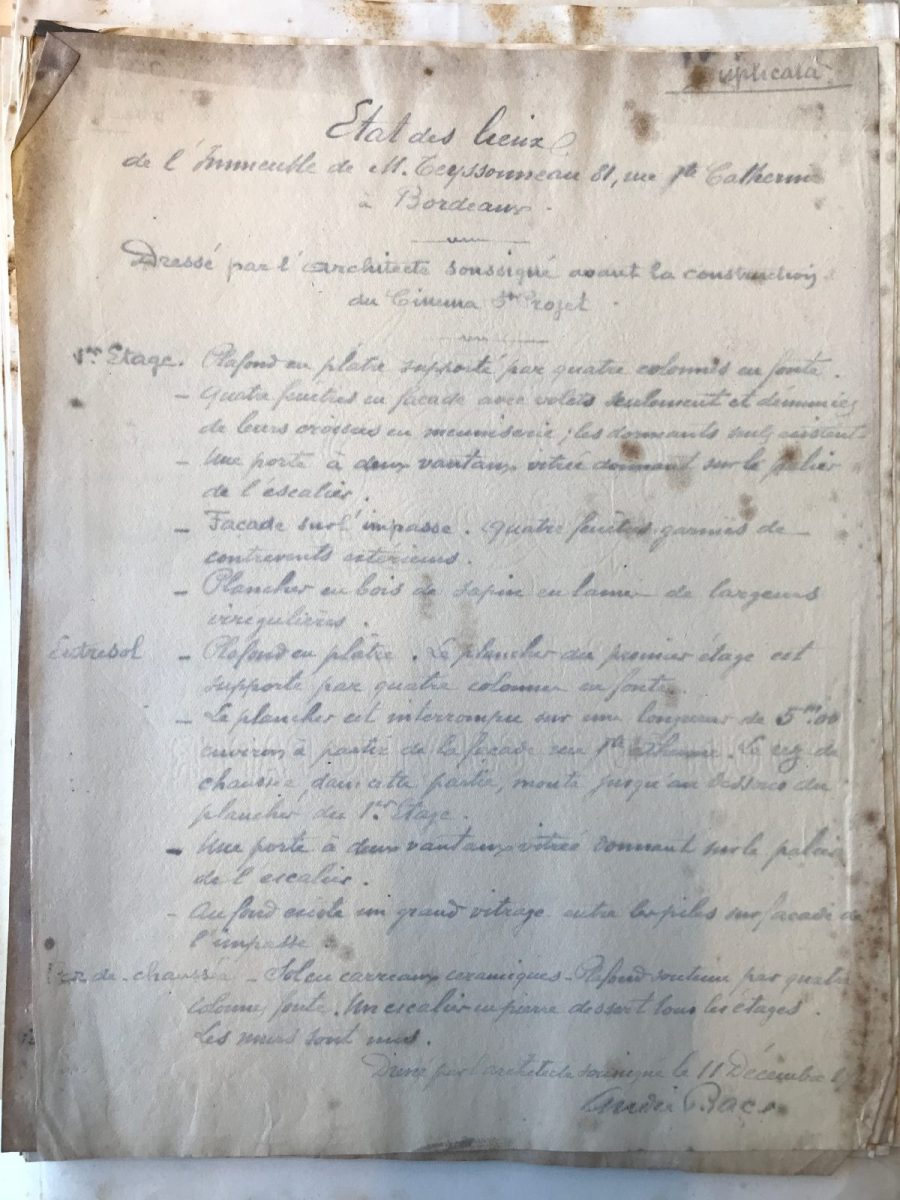 Duplicata
Etat des lieux
de l'Immeuble de M. Teyssonneau 81, rue Ste Catherine
à Bordeaux.
Dressé par l'architecte soussigné avant la construction
du Cinema St Projet.
1er Etage. Plafond en plâtre supporté par quatre colonnes en fonte.
- Quatre fenêtres en façade avec volets seulement et démunies
de leurs croisées en menuiserie ; les dormants seuls existent.
- Une porte à deux vantaux vitrée donnant sur le palier
de l'éscalier.
- Facade sur l'impasse. Quatre fenêtres garnies de
contrevents exterieurs.
- Plancher en bois de sapin en lames de largeurs
irregulières.
Entresol - Plafond en plâtre. Le plancher du premier étage est
supporté par quatre colonnes en fonte.
- Le plancher est interrompu sur une longueur de 5m00
environ à partir de la façade rue Ste Catherine. Le rez de
chaussée, dans cette partie, monte jusqu'au dessous du
plancher du 1er Etage.
- Une porte à deux vantaux vitrée donnant sur le palier
de l'escalier.
- Au fond existe un grand vitrage entre les piles sur façade de
l'impasse.
Rez-de-chaussée - Sol en carreaux ceramiques - Plafond soutenu par quatre
colonnes fonte. Un escalier en pierre dessert tous les étages.
Les murs sont nus.
Dressé par l'architecte soussigné le 11 Décembre
André Bac